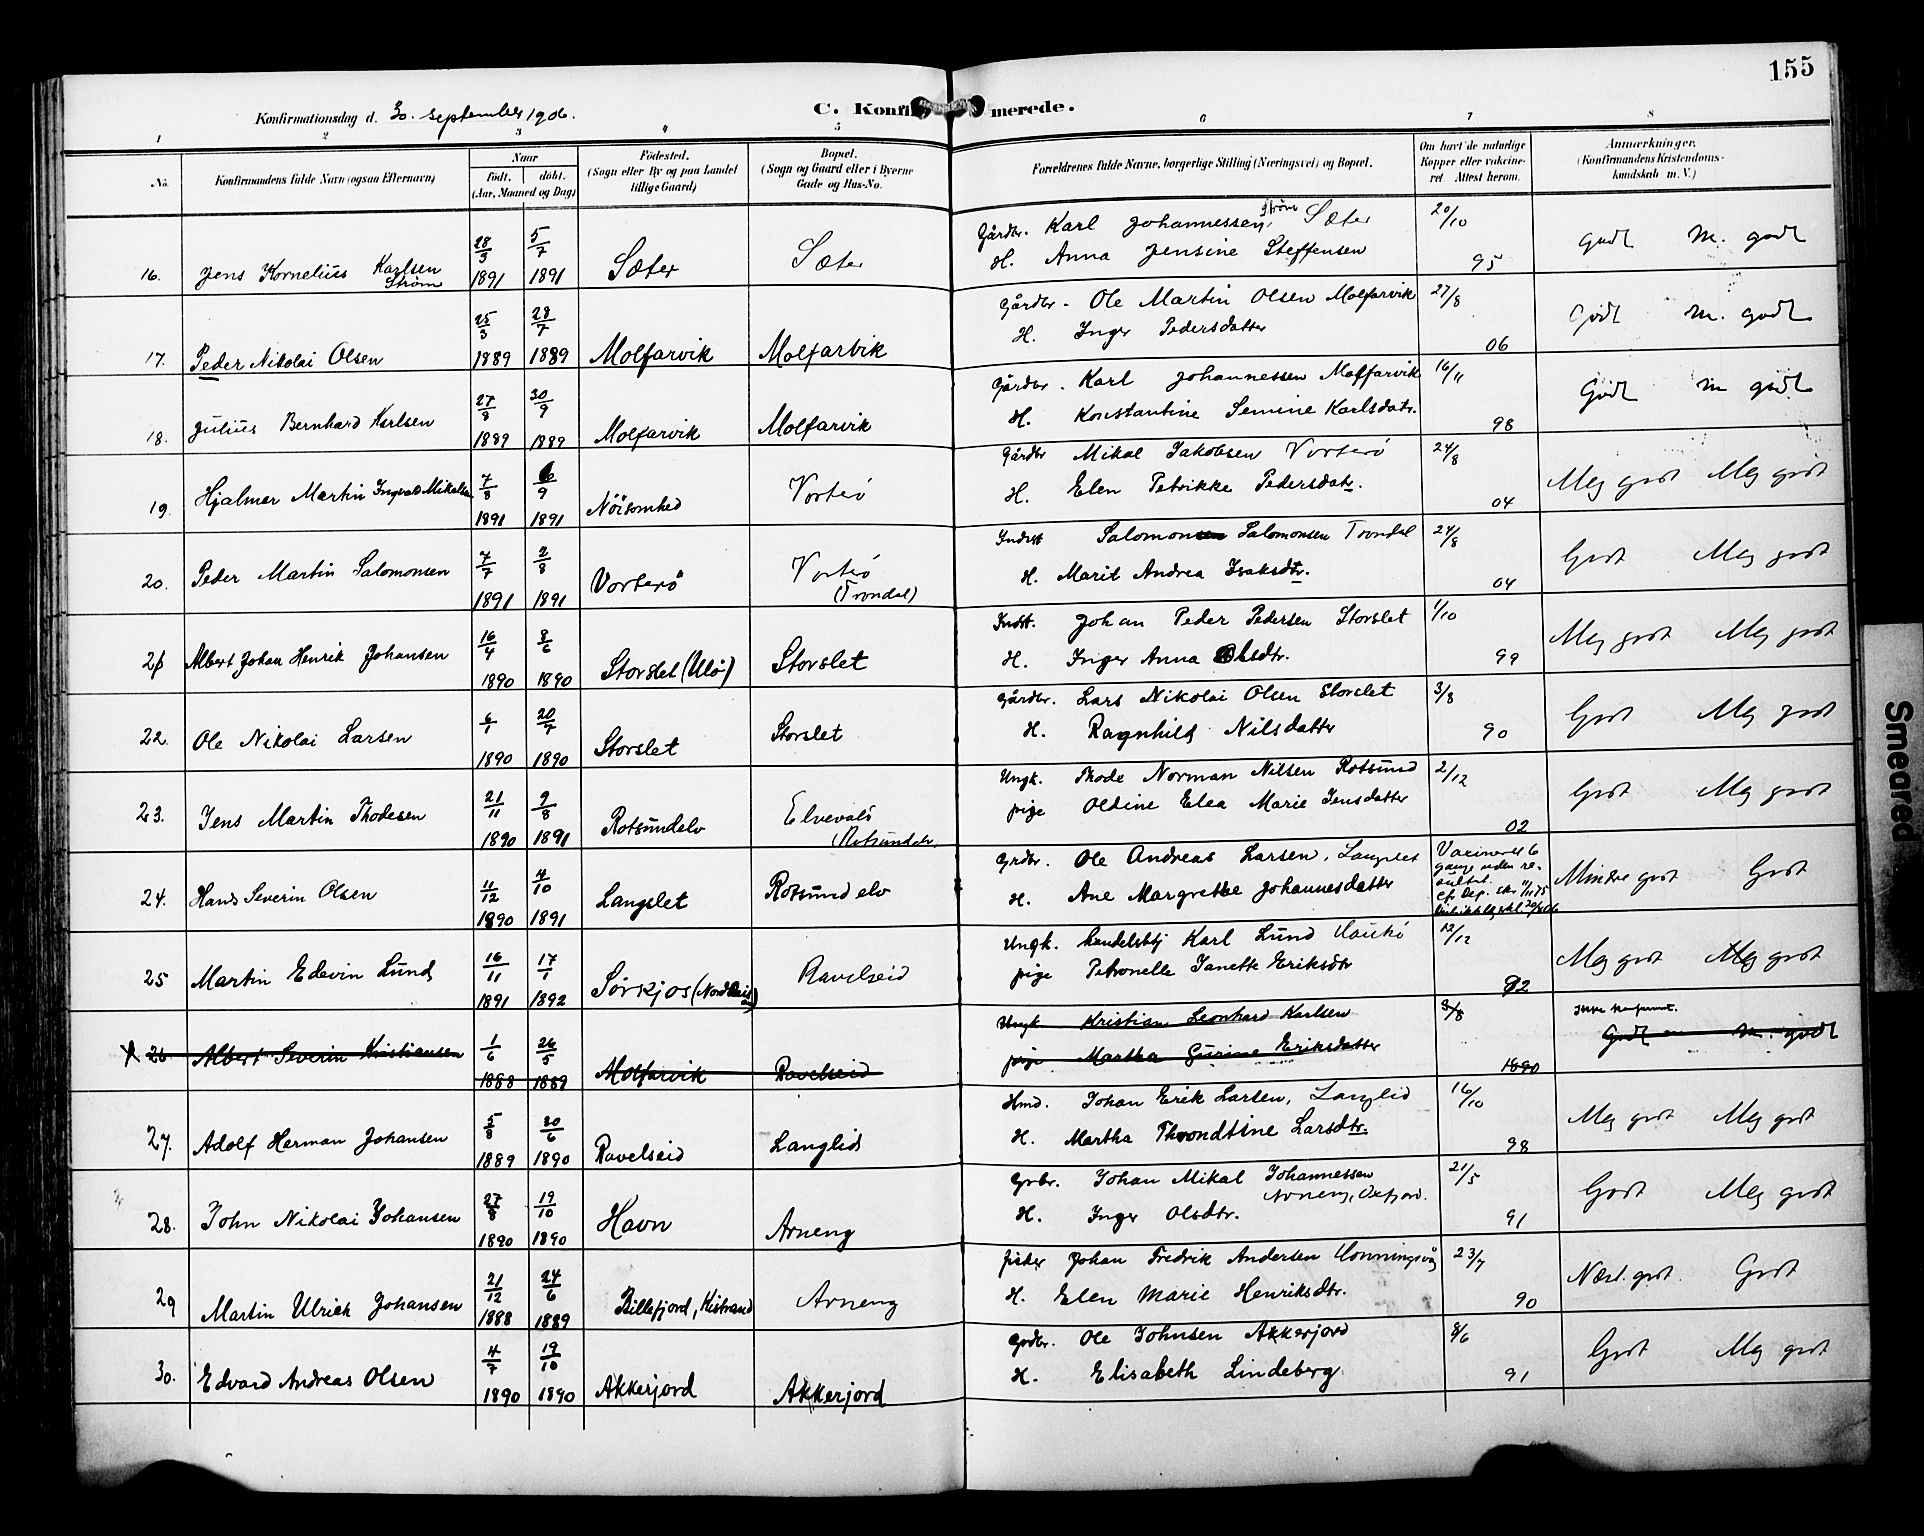 155
Konfirmationsdag d. 30. September 1906.
C. Konfirmerede.
1 2 3 4 5 6 7 8
No.
Konfirmandens fulde Navn (ogsaa Efternavn)
Naar
født. døbt.
(Aar, Maaned og Dag)
Födested.
(Sogn eller By og paa Landet
tillige Gaard)
Bopæl.
(Sogn og Gaard eller i Byerne
Gade og Hus-No.
Forældrenes fulde Navne, borgerlige Stilling (Næringsvei) og Bopæl.
Om havt de naturlige
Kopper eller vakcine-
ret Attest herom.
Anmærkninger,
(Konfirmandens Kristendoms-
kundskab m. V.)
16. Jens Kornelius Karlsen Strøm 28/3 1891 5/7 1891 Sæter Sæter
Gårdbr. Karl Johannessen Strøm, Sæter 20/10
H. Anna Jensine Steffensen 95 Godt M. godt
17. Peder Nikolai Olsen 25/3 1889 28/7 1889 Molfarvik Molfarvik
Gårdbr. Ole Martin Olsen Molfarvik 27/8
H. Inger Pedersdatter 06 Godt M. godt
18. Julius Bernhard Karlsen 27/8 1889 30/9 1889 Molfarvik Molfarvik
Gårdbr. Karl Johannessen Molfarvik 16/11
H. Konstantine Semine Karlsdatr. 98 Godt M godt
19. Hjalmer Martin Ingvald Mikalsen 7/8 1891 6/9 1891 Nöisomhed Vorterö
Gårdbr Mikal Jakobsen Vorterö 24/8
H. Elen Petrikke Pedersdatr. 04 Meg godt Meg godt
20. Peder Martin Salomonsen 7/7 1891 2/8 1891 Vorterö Vorterö (Trondal)
Indst Salomon Salomonsen Trondal 24/8
H. Marit Andrea Isaksdtr. 04 Godt Meg godt
21 Albert Johan Henrik Johansen 16/4 1890 8/6 1890 Storslet (Ulö) Storslet
Indst. Johan Peder Pedersen Storslet 1/10
H. Inger Anna Olsdtr. 99 Meg godt Meg godt
22. Ole Nikolai Larsen 6/1 1890 20/7 1890 Storslet Storslet
Gårdbr. Lars Nikolai Olsen Storslet 3/8
H. Ragnhild Nilsdatter 90 Godt Meg godt
23. Jens Martin Thodesen 21/11 1890 9/8 1891 Rotsundelv Elvevold (Rotsundelv)
Ungk. Thode Norman Nilsen Rotsund 2/12
pige Oldine Elea Marie Jensdatter 02 Godt Meg godt
24. Hans Severin Olsen 11/12 1890 4/10 1891 Langslet Rotsundelv
Grdbr. Ole Andreas Larsen, Langslet
H. Ane Margrethe Johannesdatter
Vaxineret 6
gange uden re-
sultat.
Mindre godt Godt
25 Martin Edevin Lund 16/11 1891 17/1 1892 Sörkjos (Nord Reis) Ravelseid
Ungk. handelsbtj Karl Lund Maukö 12/12
pige Petronelle Janette Eriksdtr 92 Meg godt Meg godt
X 26 Albert Severin Kristiansen 1/6 1888 26/5 1889 Molfarvik Ravelseid
Ungk Kristian Leonhard Karlsen 3/8
pige Martha Gurine Eriksdatter 1890 Ikke konfirmert. Godt M. godt
27. Adolf Herman Johansen 5/8 1889 30/6 1890 Ravelseid Langlid
Hmd. Johan Erik Larsen, Langlid 16/10
H. Martha Throndtine Larsdtr. 98 Meg godt Meg godt
28. John Nikolai Johansen 27/8 1890 19/10 1890 Havn Arneng
Grbr. Johan Mikal Johannessen Arneng, Oxfjord. 21/5
H. Inger Olsdtr. 91 Godt Meg godt
29 Martin Ulrick Johansen 21/12 1888 24/6 1889 Billefjord, Kistrand Arneng
fisker Johan Fredrik Andersen Honningsvåg 23/7
H. Elen Marie Henriksdtr. 90 Nærl. godt. Godt
30. Edvard Andreas Olsen 4/7 1890 19/10 1890 Akkerjord Akkerjord
Grdbr. Ole Johnsen Akkerjord 8/6
H. Elisabeth Lindeberg 91 Godt Meg godt
Smeared